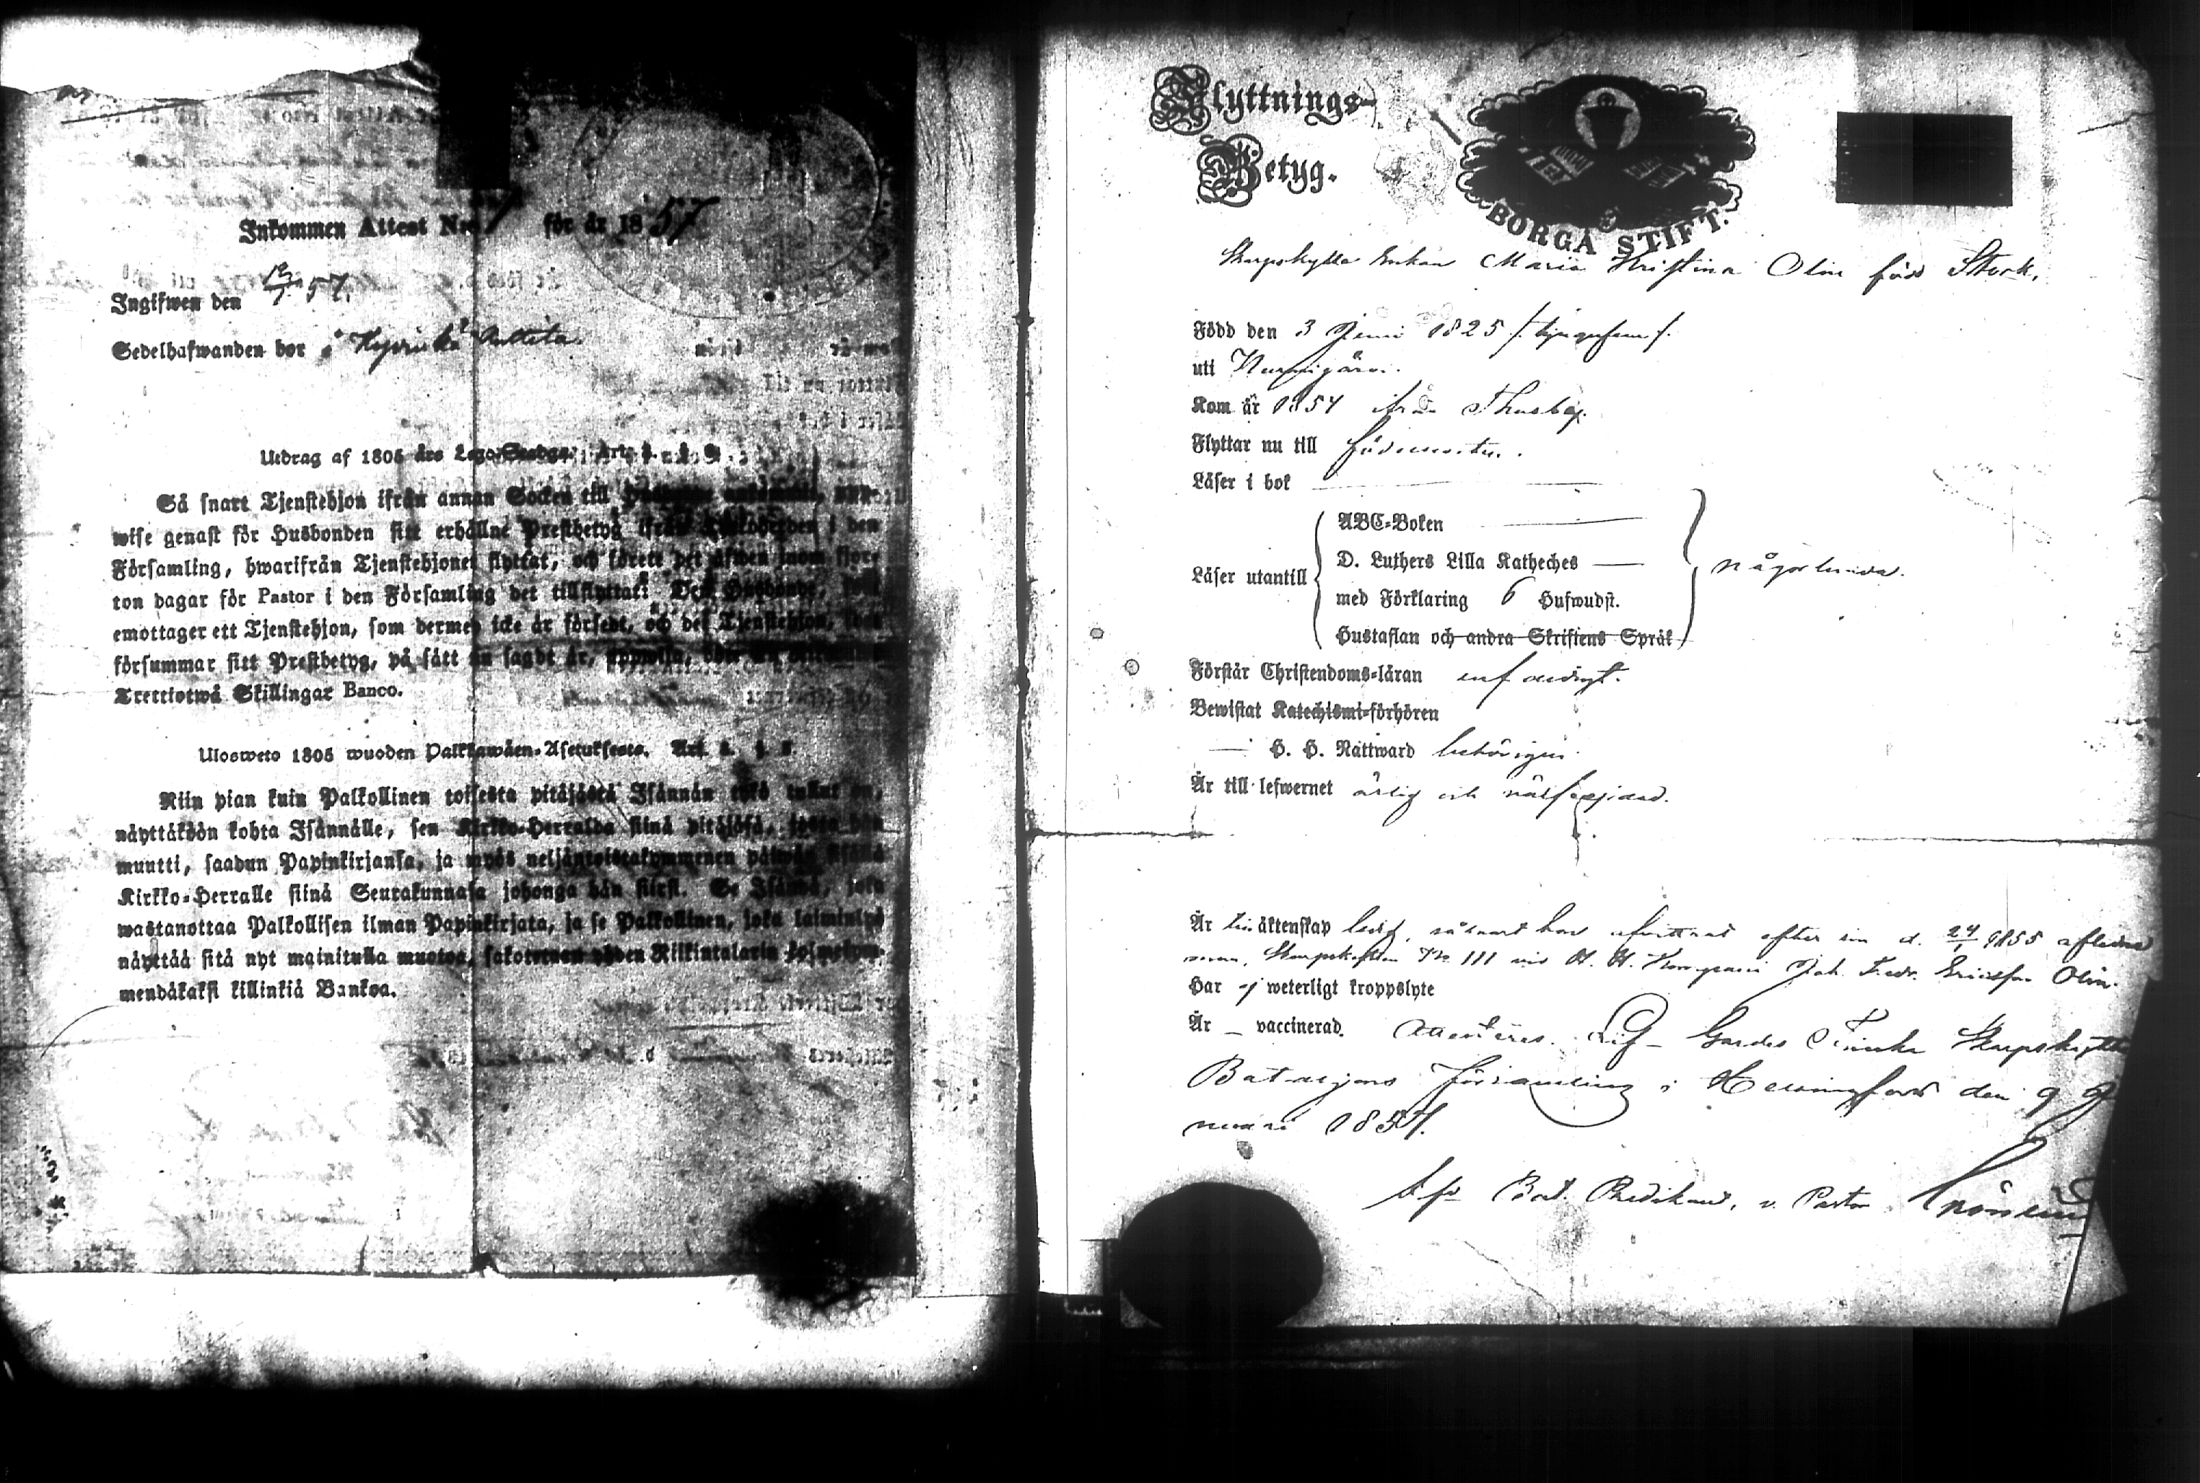 Inkommen Attest N:o 7 för år 1857
Ingifwen den 12/1 57.
Sedelhafwanden bor i Hyvinkä Anttila.
Utdrag af 1805 års Lego-Stadga. Art.
Så snart Tjenstehjon ifrån annan Socken till
wise genast för Husbonden sitt erhållne Prestbetyg ifrån i den
Församling, hwarifrån Tjenstehjonet flyttat, och förete det äfwen inom fjor-
ton dagar för Pastor i den Församling det tillflyttat. Den Husbonde, som
emottager ett Tjenstehjon, som dermed icke är försedt, och det Tjenstehjon, som
försummar sitt Prestbetyg, på sätt nu sagdt är, uppwisa,
Trettiotwå Skillingar Banco.
Ulosweto 1805 wuoden Palkkawäen-Asetuksesta. Art.
Niin pian kuin Palkollinen toisesta pitäjästä Isännän tykö tullut on,
näyttäköön kohta Isännälle, sen Kirkko-Herralda siinä pitäjäsä, josta hän
muutti, saadun Papinkirjansa, ja myös neljäntoistakymmenen päiwän sisällä
Kirkko-Herralle siinä Seurakunnasa johonga hän siirsi. Se Isändä, joka
wastanottaa Palkollisen ilman Papinkirjata, ja se Palkollinen, joka laiminlyö
näyttää sitä nyt mainitulla muotoa, sakotetaan yhden Riikintalarin kolmekym-
mendäkaksi killinkiä Bankoa.
Flyttnings-
Betyg.
BORGÅ STIFT.
Skarpskytte Enkan Maria Kristina Olin född Stork.
Född den 3 Juni 1825
uti Nurmijärvi.
Kom år 1854 ifrån Thusby.
Flyttar nu till födelseorten.
Läser i bok
ABC-Boken
D. Luthers Lilla Katheches
Läser utantill någorlunda.
med Förklaring 6 Hufwudst.
Hustaflan och andra Skriftens Språk
Förstår Christendoms-läran enfaldigt.
Bewistat Katechismi-förhören
H. H. Nattward behörigen.
Är till lefwernet ärlig och välfrejdad.
Är till äktenskap ledig, såsom efter sin d. 24/9 1855 aflidne
man, Skarpskytten No 111 vid Kompani Joh. Fredr. Ericsson Olin.
Har ej weterligt kroppslyte
Är – vaccinerad. Attesteras. Lif-Gardes Finska Skarpskytte
Bataljons församling i Helsingfors den 9 Ja
nuari 1857.
Bat. Predikant, v. Pastor